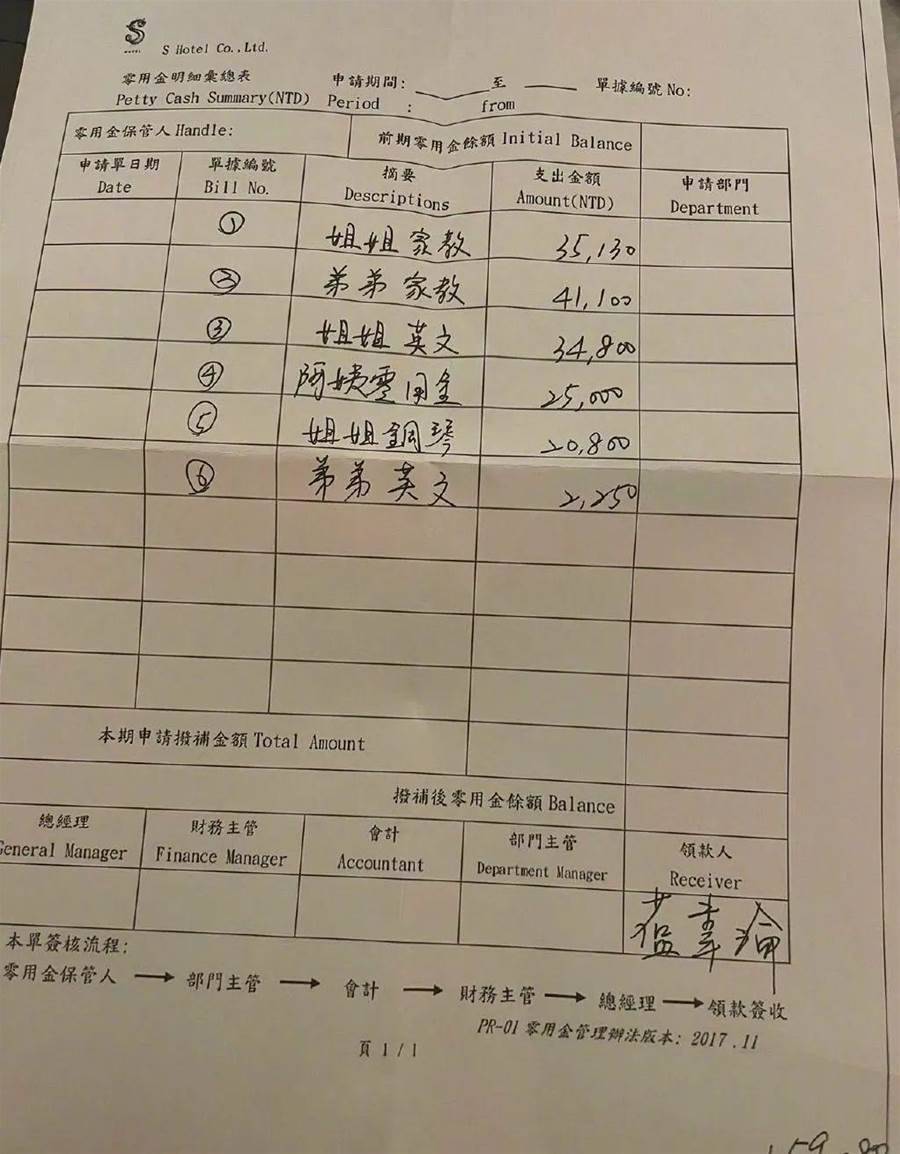 S
S Hotel Co.,Ltd.
零用金明細彙總表 申請期間: 至 單據編號 No:
Petty Cash Summary(NTD) Period : from
零用金保管人 Handle: 前期零用金餘額 Initial Balance
申請單日期 單據編號 摘要 支出金額 申請部門
Date Bill No. Descriptions Amount(NTD) Department
① 姐姐家教 35,130
② 弟弟家教 41,100
③ 姐姐英文 34,800
④ 阿姨零用金 25,000
⑤ 姐姐鋼琴 20,800
⑥ 弟弟英文 2,250
本期申請撥補金額 Total Amount
撥補後零用金餘額 Balance
總經理 財務主管 會計 部門主管 領款人
General Manager Finance Manager Accountant Department Manager Receiver
本單簽核流程:
零用金保管人 → 部門主管 → 會計 → 財務主管 → 總經理 → 領款簽收
PR-01 零用金管理辦法版本: 2017.11
頁 1/1